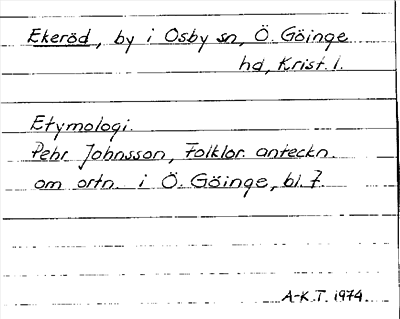 Ekeröd, by i Osby sn, Ö. Göinge
hd, Krist. l.
Etymologi.
Pehr Johnsson, Folklor. anteckn.
om ortn. i Ö. Göinge, bl. 7.
A-K.T. 1974.